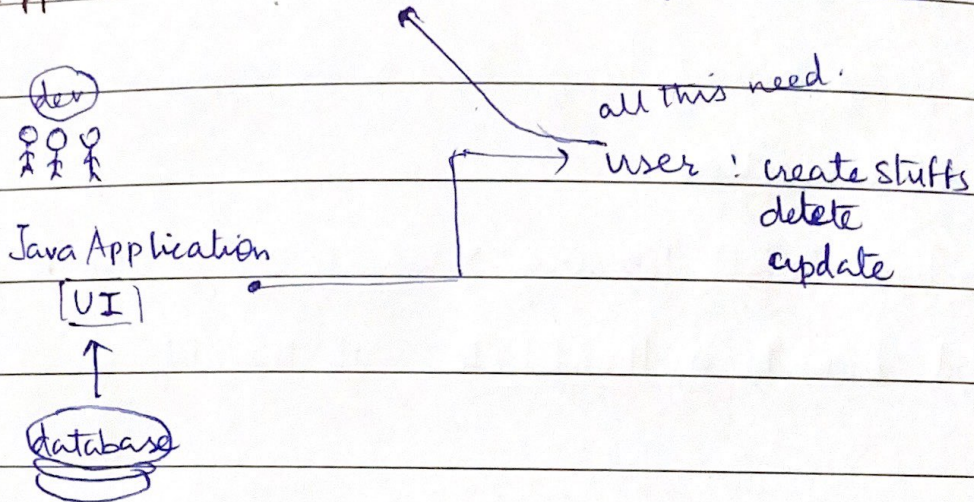 dev
all this need.
user : create stuffs
delete
update
Java Application
[UI]
database